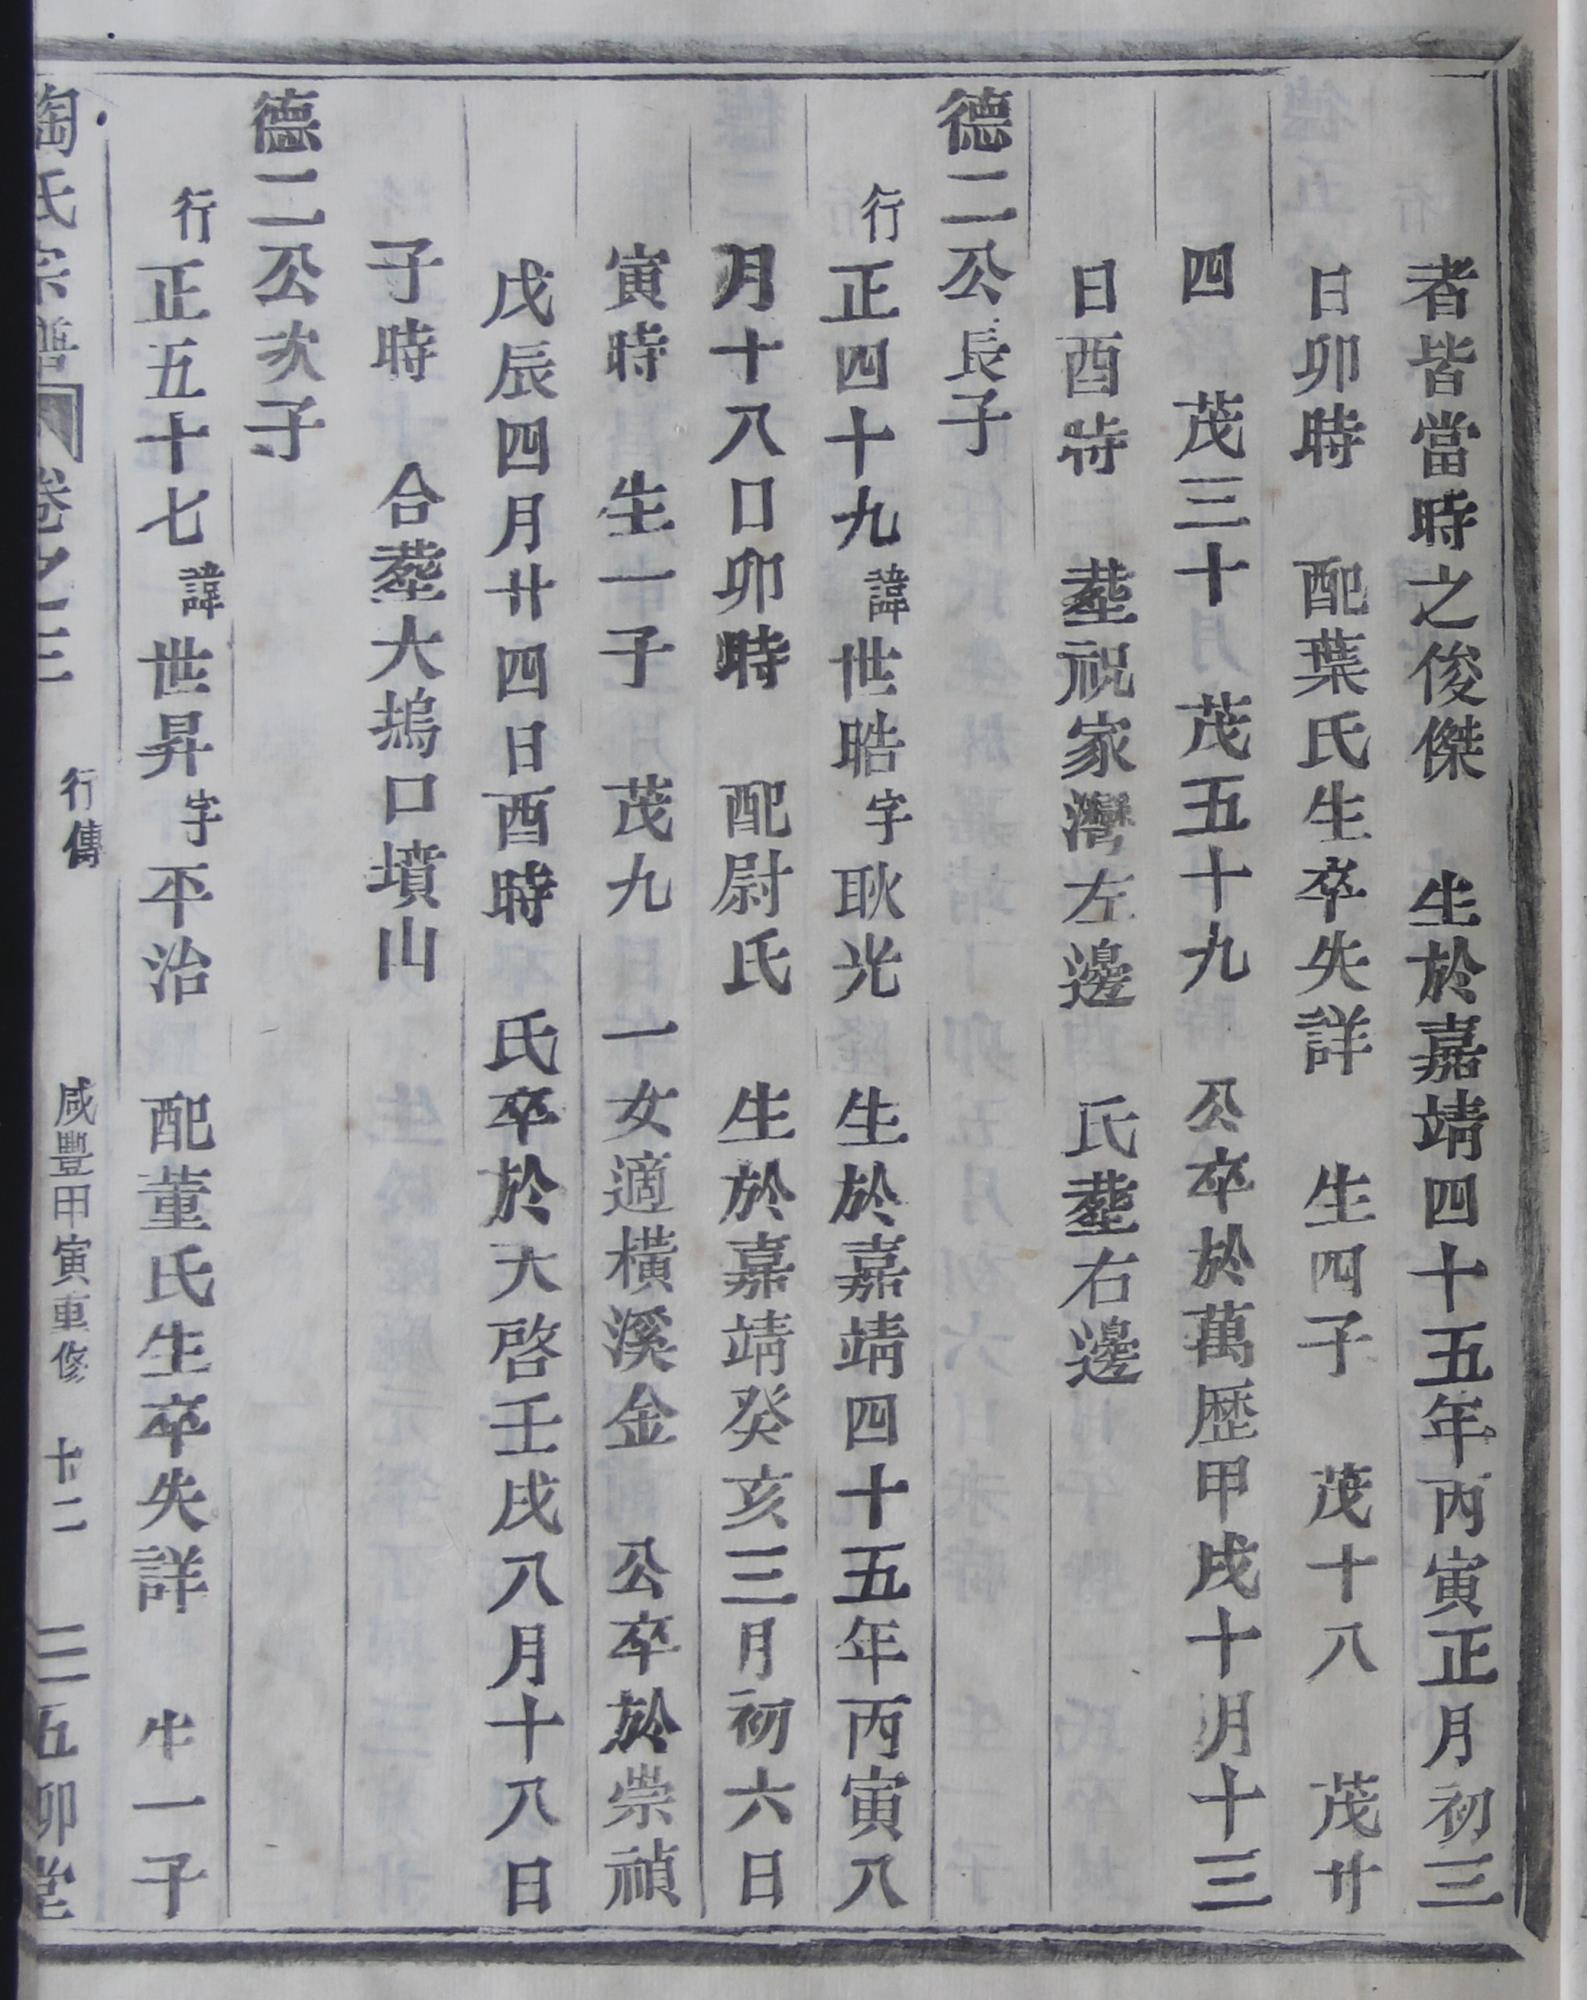 者皆當時之俊傑　生於嘉靖四十五年丙寅正月初三
日卯時　配葉氏生卒失詳　生四子　茂十八　茂廿
四　茂三十　茂五十九　公卒於萬歷甲戌十月十三
日酉時　塟祝家灣左邊　氏塟右邊
德二公長子
行正四十九諱世晧字耿光　生於嘉靖四十五年丙寅八
月十八口卯時　配尉氏　生於嘉靖癸亥三月初六日
寅時　生一子　茂九　一女適橫溪金　公卒於崇禎
戊辰四月廿四日酉時　氏卒於大啓壬戌八月十八日
子時　合塟大塢口墳山
德二公次子
行正五十七諱世昇字平治　配董氏生卒失詳　生一子
陶氏宗譜　卷之三　行傳　咸豐甲寅重修　十二　三五卯堂